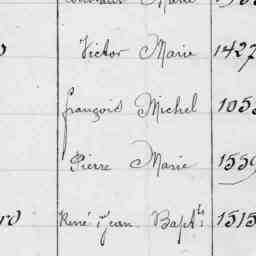 Victor Marie 1427
françois Michel 105
Pierre Marie 1559
René Jean Bapte 1515